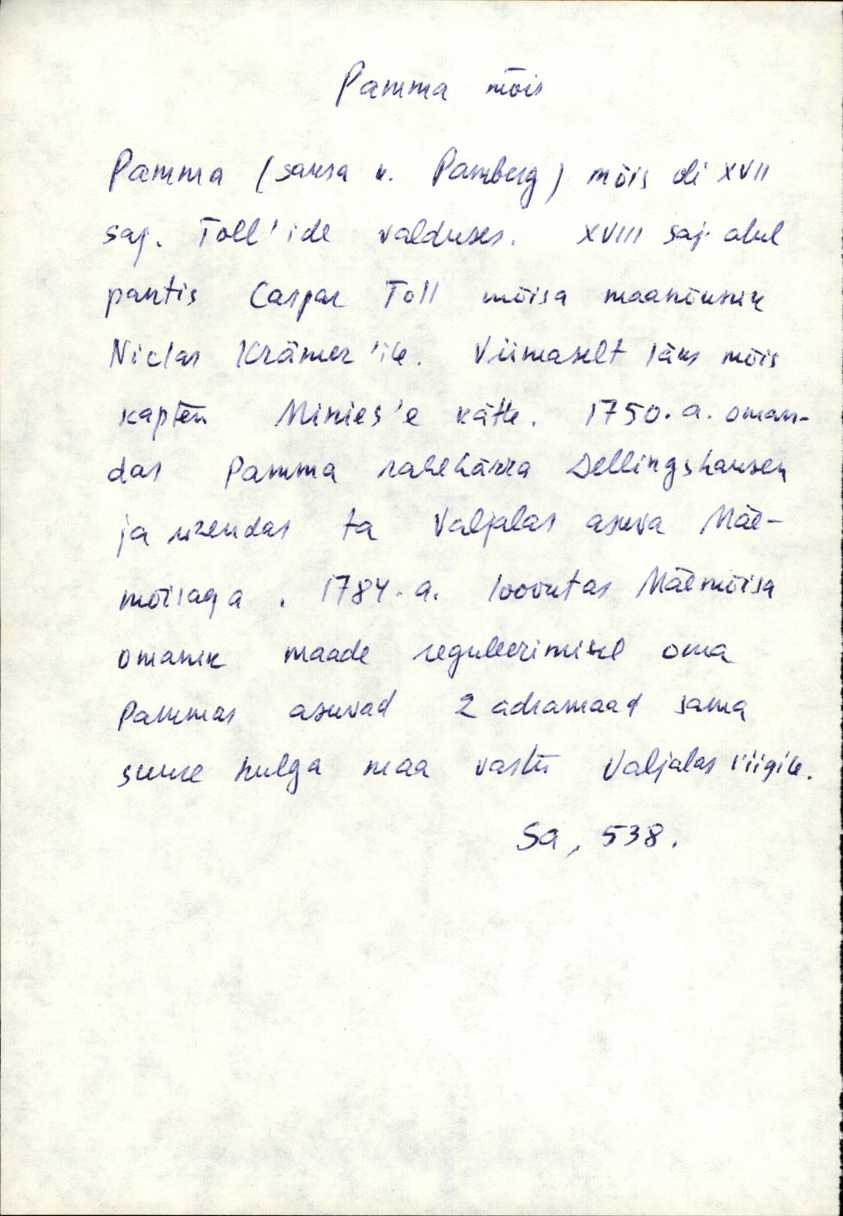 Pamma mõis
Pamma (saksa k. Pamberg) mõis oli XVII
saj. Toll'ide valduses. XVIII saj. alul
pantis Caspar Toll mõisa maanõunik
Niclas Krämer'ile. Viimaselt läks mõis
kapten Minies'e kätte. 1750. a. oman-
das Pamma raehärra Dellingshausen
ja ühendas ta Valjalas asuva Mäe-
mõisaga. 1784. a. loovutas Mäemõisa
omanik maade reguleerimisel oma
Pammas asuvad 2 adramaad sama
suure hulga maa vastu Valjalas riigile.
Sa, 538.